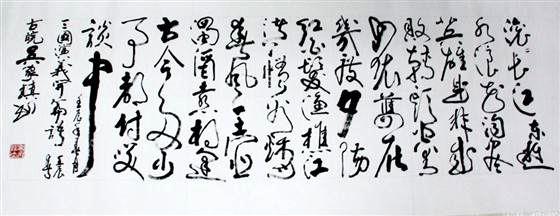 滚滚长江东逝
水浪花淘尽
英雄是非成
败转头空青
山依旧在
几度夕阳
红白发渔樵江
渚上惯看秋月
春风一壶
浊酒喜相逢
古今多少
事都付笑
谈中
三国演义开篇词
壬辰